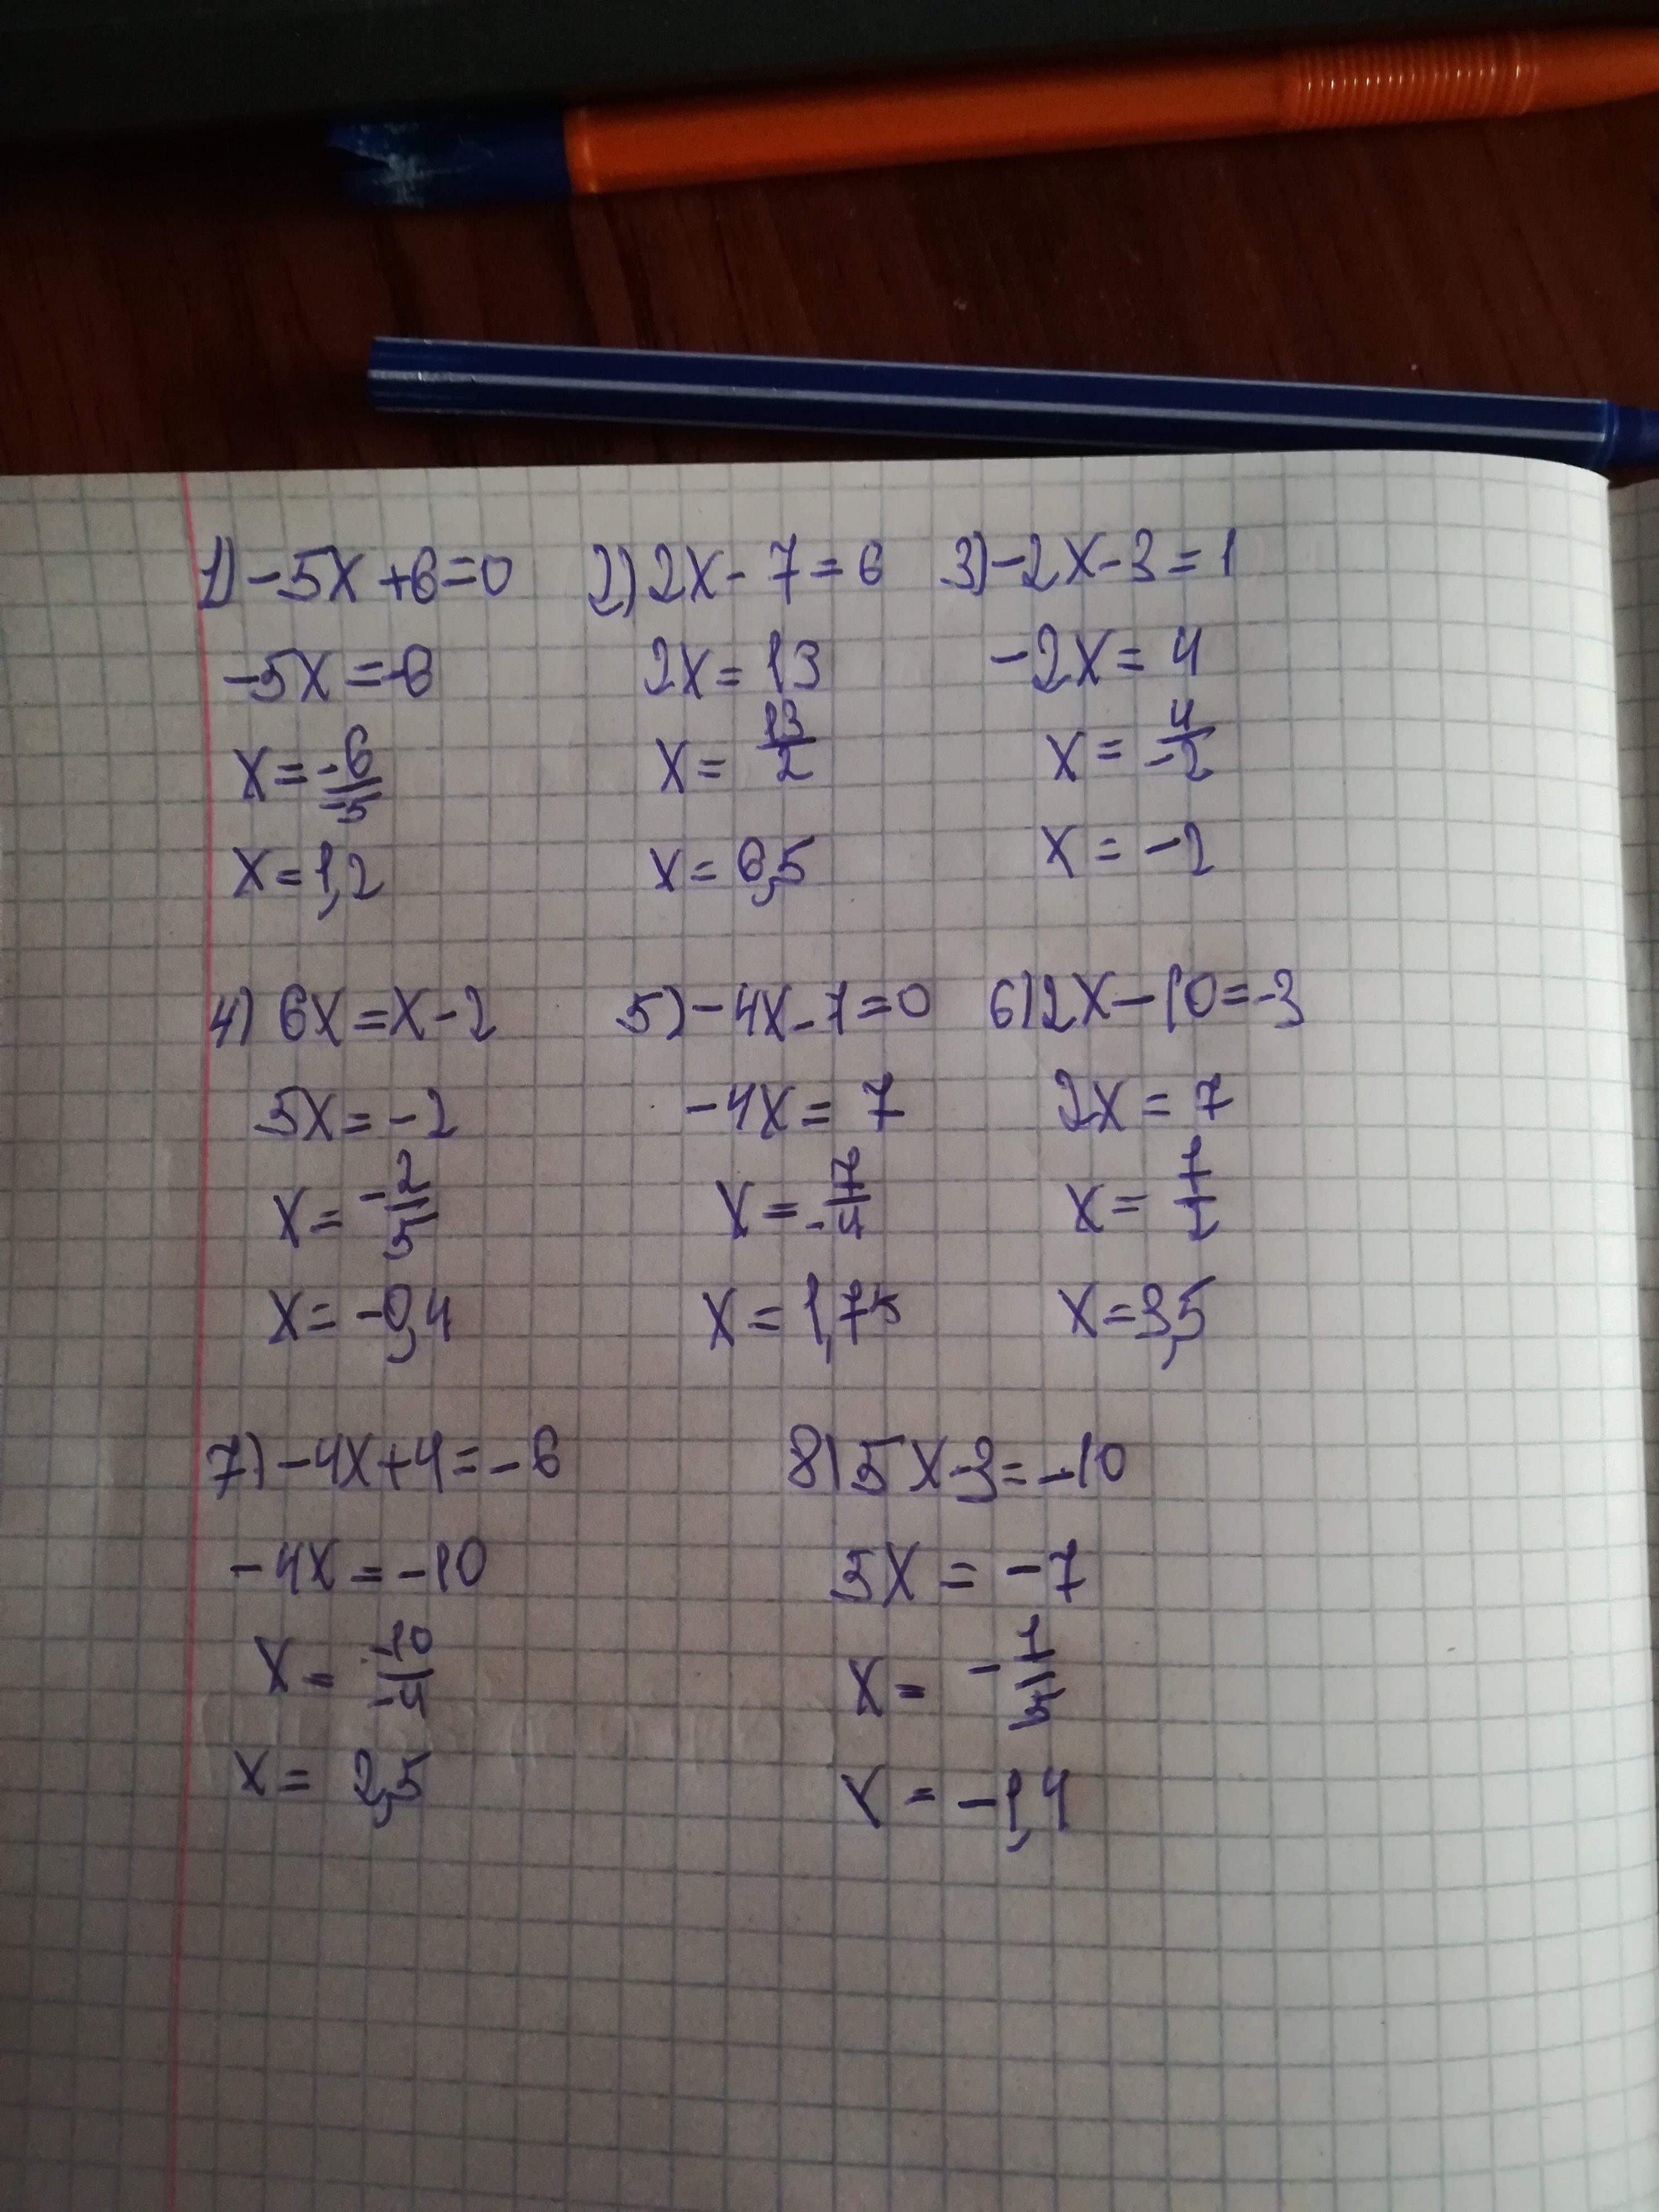 1) -5x+6=0 2) 2x-7=6 3) -2x-3=1
-5x=-6 2x=13 -2x=4
x=-6/-5 x=13/2 x=4/-2
x=1,2 x=6,5 x=-2
4) 6x=x-2 5) -4x-7=0 6) 2x-10=-3
5x=-2 -4x=7 2x=7
x=-2/5 x=-7/4 x=7/2
x=-0,4 x=1,75 x=3,5
7) -4x+4=-6 8) 5x-3=-10
-4x=-10 5x=-7
x=-10/-4 x=-7/5
x=2,5 x=-1,4